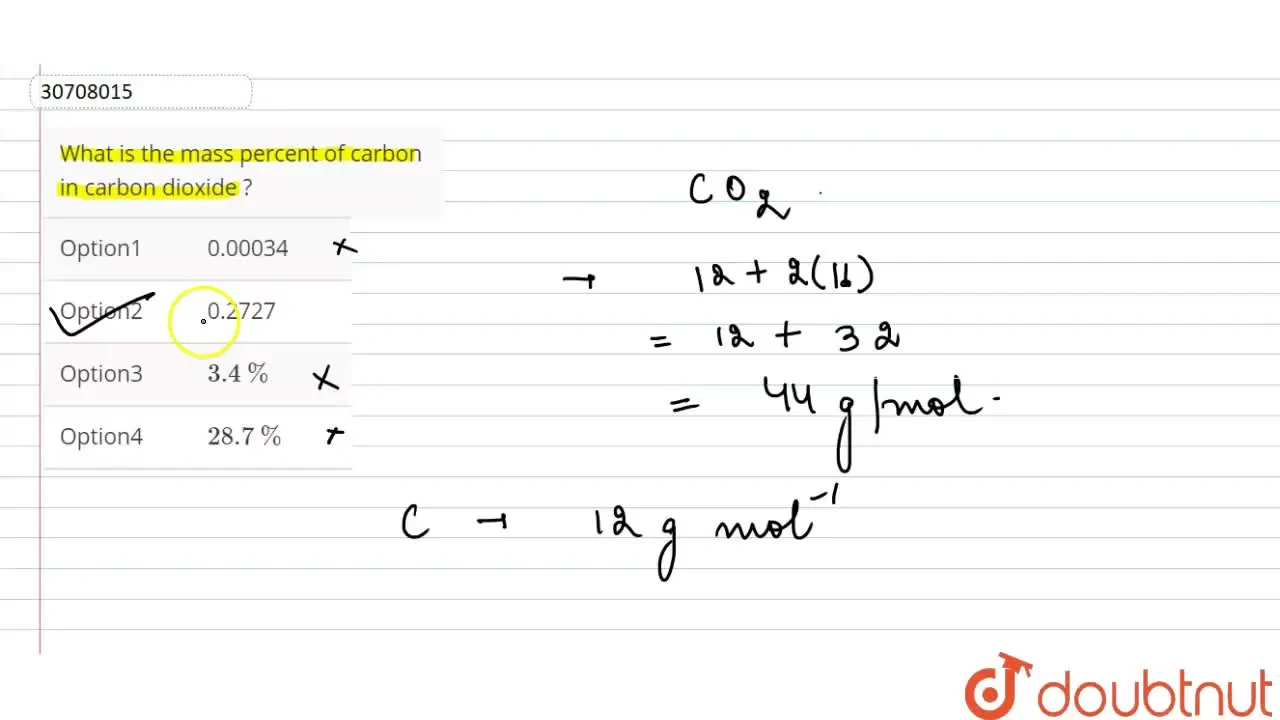 30708015
What is the mass percent of carbon
in carbon dioxide ?
Option1 0.00034 ×
Option2 0.2727
Option3 3.4 % ×
Option4 28.7 % ×
CO₂
→ 12 + 2(16)
= 12 + 32
= 44 g/mol.
C → 12 g mol⁻¹
doubtnut